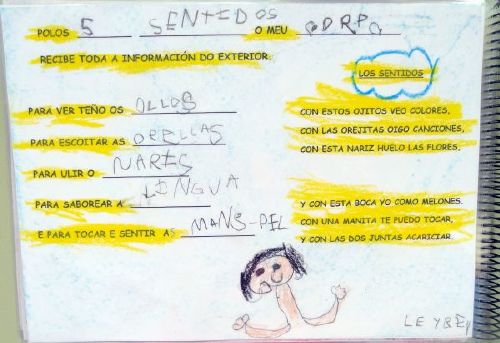 POLOS 5 SENTIDOS O MEU CORPO
RECIBE TODA A INFORMACIÓN DO EXTERIOR.
LOS SENTIDOS
PARA VER TEÑO OS OLLOS
PARA ESCOITAR AS ORELLAS
PARA ULIR O NARES
PARA SABOREAR A LENGUA
E PARA TOCAR E SENTIR AS MANS-PEL
CON ESTOS OJITOS VEO COLORES,
CON LAS OREJITAS OIGO CANCIONES,
CON ESTA NARIZ HUELO LAS FLORES,
Y CON ESTA BOCA YO COMO MELONES.
CON UNA MANITA TE PUEDO TOCAR,
Y CON LAS DOS JUNTAS ACARICIAR.
LEYBEY